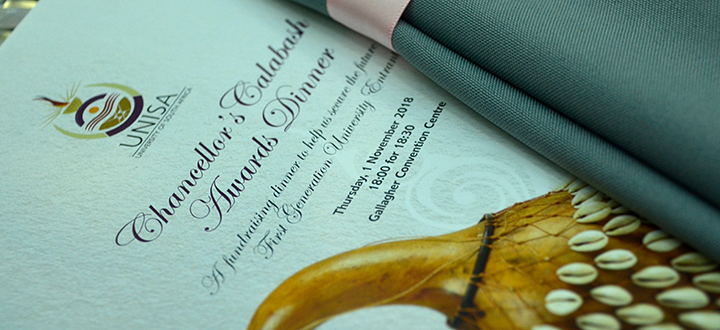 UNISA
UNIVERSITY OF SOUTH AFRICA
Chancellor's Calabash
Awards Dinner
A fundraising dinner to help us secure the future
First Generation University Entran
Thursday, 1 November 2018
18:00 for 18:30
Gallagher Convention Centre